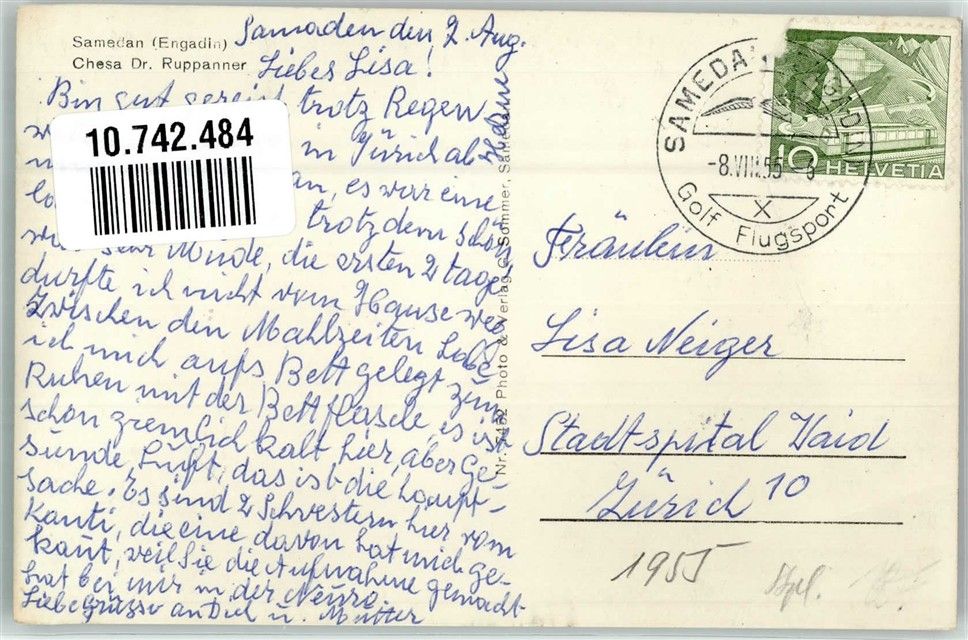 Samedan (Engadin)
Chesa Dr. Ruppanner
Samaden den 2. Aug.
Liebes Lisa!
Bin gut gereist trotz Regen
in Zürich ab
an, es war eine
trotzdem schön
sehr Müde, die ersten 2 tage
durfte ich nicht vom Hause weg
Zwischen den Mahlzeiten habe
ich mich aufs Bett gelegt zum
Ruhen mit der Bettflasche, es ist
schon ziemlich kalt hier, aber Ge-
sunde Luft, das ist die haupt-
sache. Es sind 2 Schwestern hier vom
Kanti, die eine davon hat mich ge-
kant, weil Sie die Aufnahme gemacht
hat bei mir in der Neuro.
Liebe Grüsse an Dich u. Mutter
10.742.484
Nr. 7452 Photo & Verlag G. Sommer, Samedan
SAMEDAN
-8.VIII.55
Golf Flugsport
10 HELVETIA
Fräulein
Lisa Neiger
Stadtspital Waid
Zürich 10
1955